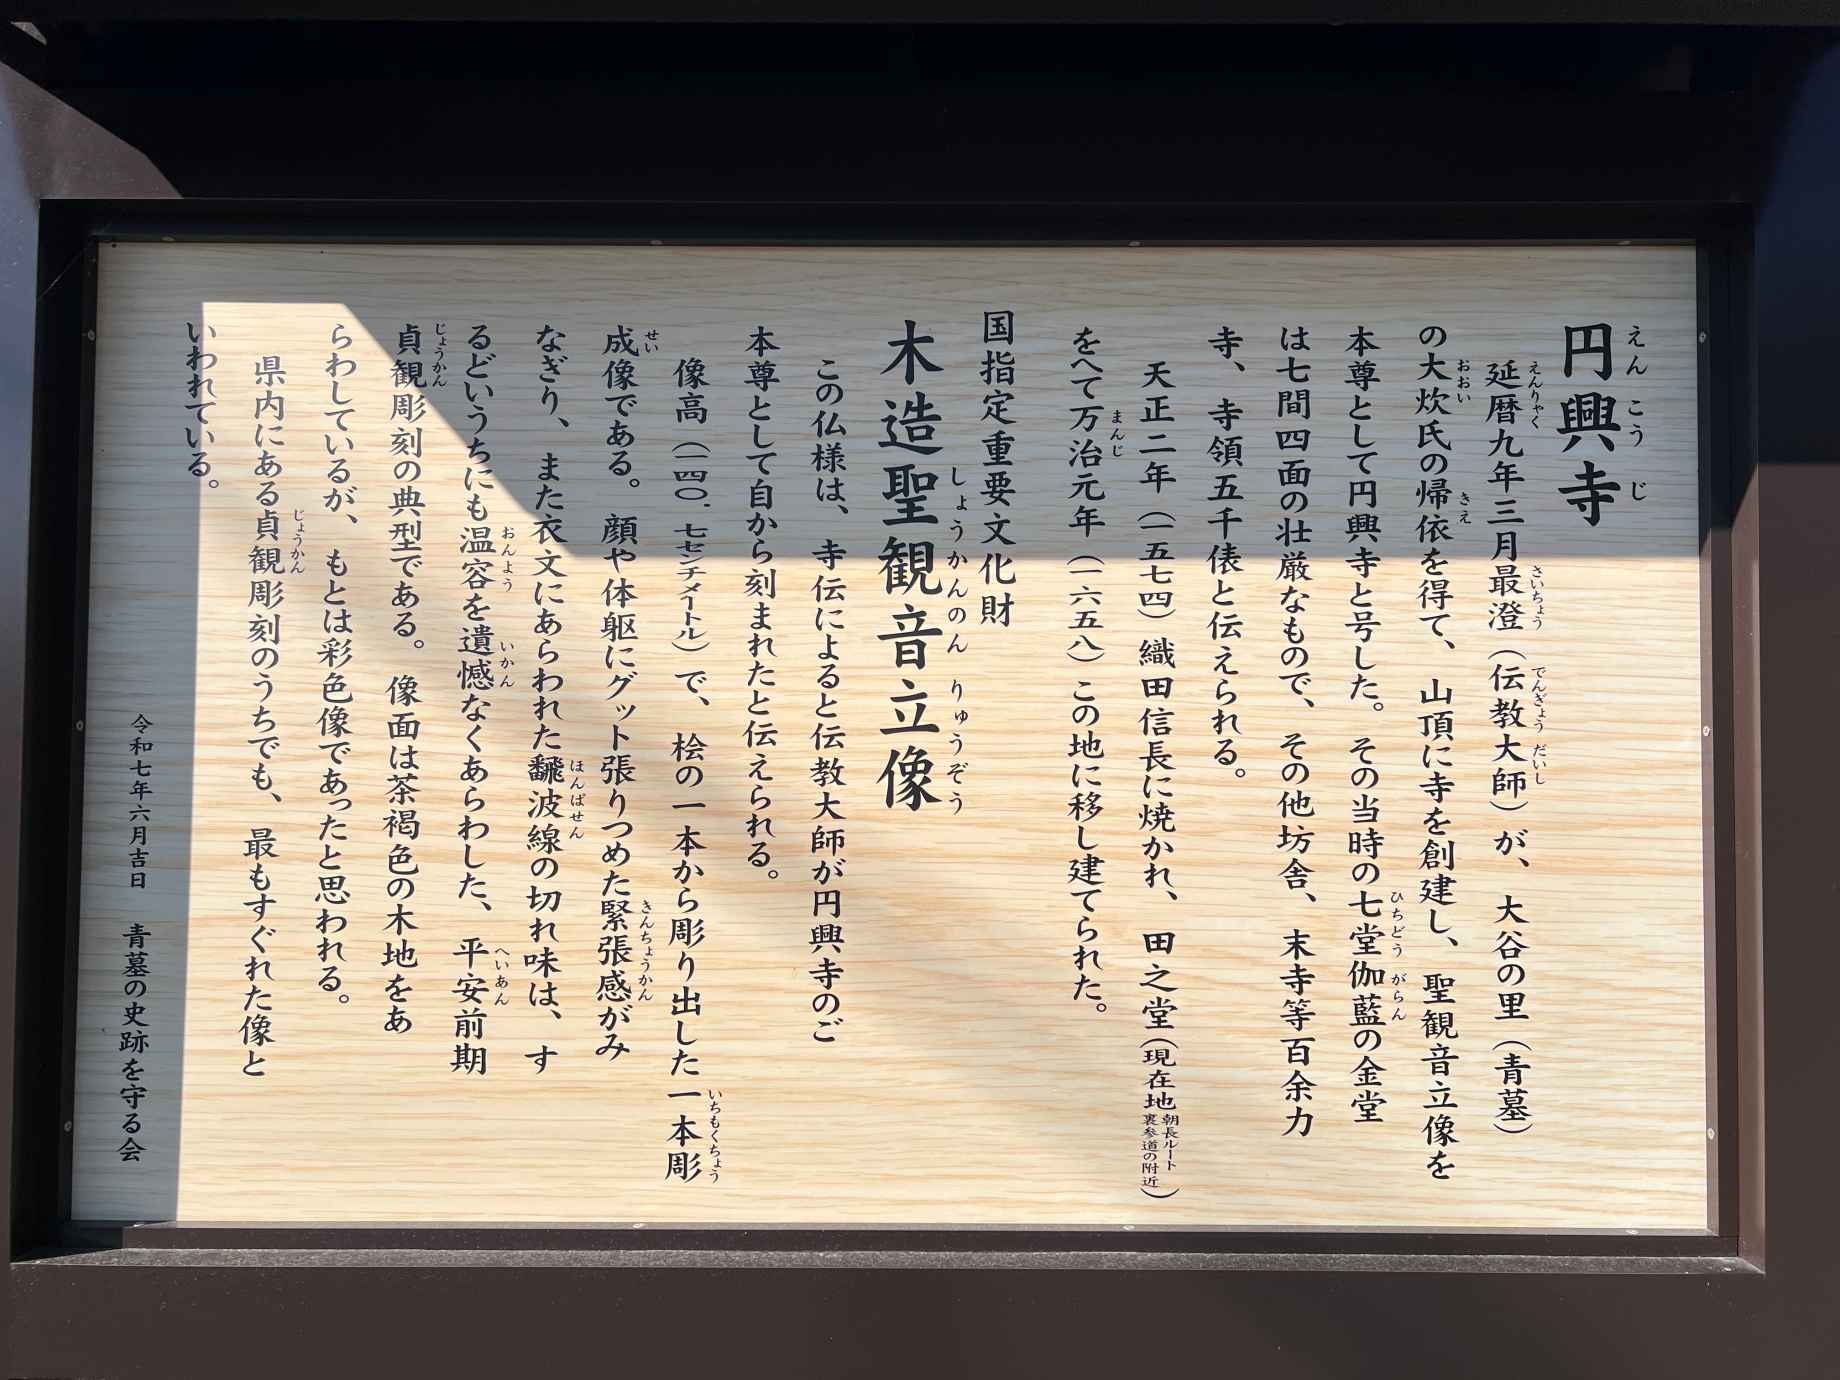 円興寺
延暦九年三月最澄（伝教大師）が、大谷の里（青墓）
の大炊氏の帰依を得て、山頂に寺を創建し、聖観音立像を
本尊として円興寺と号した。その当時の七堂伽藍の金堂
は七間四面の壮厳なもので、その他坊舎、末寺等百余力
寺、寺領五千俵と伝えられる。
天正二年（一五七四）織田信長に焼かれ、田之堂（現在地朝長ルート裏参道の附近）
をへて万治元年（一六五八）この地に移し建てられた。
国指定重要文化財
木造聖観音立像
この仏様は、寺伝によると伝教大師が円興寺のご
本尊として自から刻まれたと伝えられる。
像高（一四〇．七センチメートル）で、桧の一本から彫り出した一本彫
成像である。顔や体躯にグット張りつめた緊張感がみ
なぎり、また衣文にあらわれた飜波線の切れ味は、す
るどいうちにも温容を遺憾なくあらわした、平安前期
貞観彫刻の典型である。像面は茶褐色の木地をあ
らわしているが、もとは彩色像であったと思われる。
県内にある貞観彫刻のうちでも、最もすぐれた像と
いわれている。
令和七年六月吉日　青墓の史跡を守る会